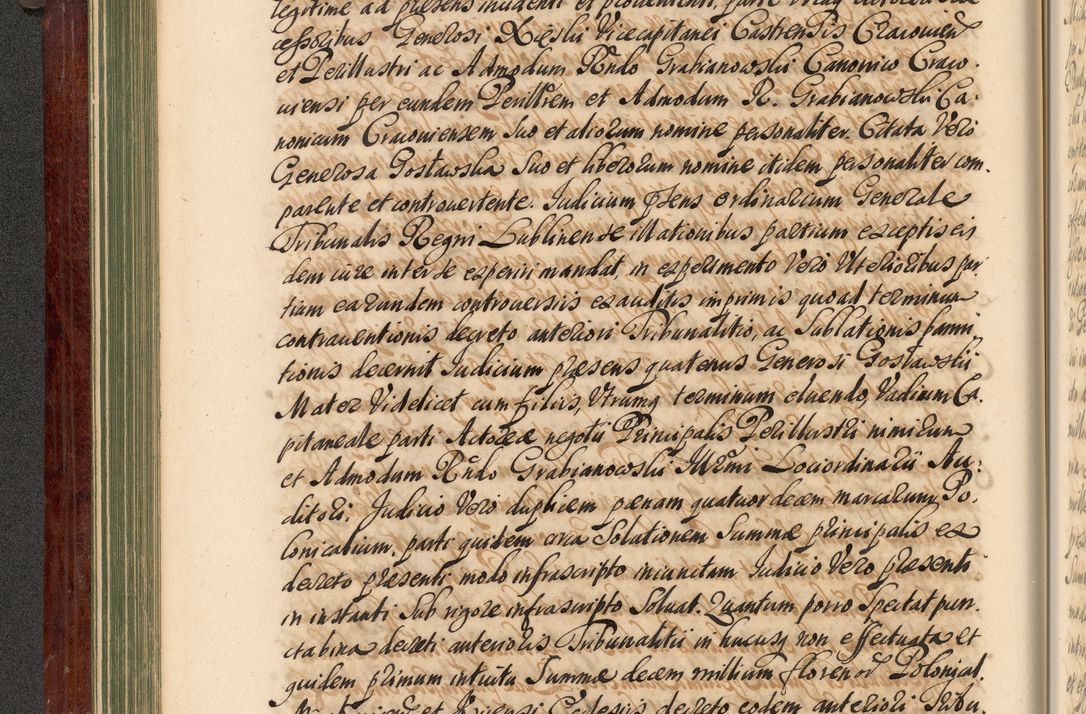 legitime ad præsens incidenti et provenienti, parte utraq
cessoribus Generosi Kęslii Vicecapitanei Castrensis Cracovien
et Perillustri ac Admodum Rndo Grabianowslii Canonico Craco-
viensi per eundem Perilltrem et Admodum R. Grabianowslii Ca-
nonicum Cracoviensem suo et aliorum nomine personaliter Citata Vero
Generosa Gostawslia Suo et liberorum nomine itidem personaliter com-
parente et controvertente. Judicium psens ordinarium Generale
Tribunalis Regni Lublinense illationibus partium exceptis eis
dem iure inter se experiri mandat, in experimento Vero Ulterioribus par-
tium earundem controversiis exauditis imprimis quoad terminum
contraventionis decreto anteriori Tribunalitio, ac Sublationis banni
tionis decernit Judicium præsens quatenus Generosi Gostawslii
Mater Videlicet cum filiis, Utrumq terminum eluendo, Vadium Ca-
pitaneale parti Actoreæ negotii Principalis Perillustri nimirum
et Admodum Rndo Grabianowslii Illrmi Lociordinarii Au-
ditori; Judicio Vero duplicem pænam quatuordecem marcarum Po-
lonicalium, parti quidem circa Solutionem Summæ principalis ex
decreto præsenti modo infrascripto iniunctam Judicio Vero præsenti
in instanti Sub rigore infrascripto Soluat. Quantum porro Spectat pun-
cta bina decreti anterioris Tribunalitii in hucusq non effectuata et
quidem primum intuitu Summæ decem millium florenor Polonical.
et Decreto eodem anteriori Tribu.